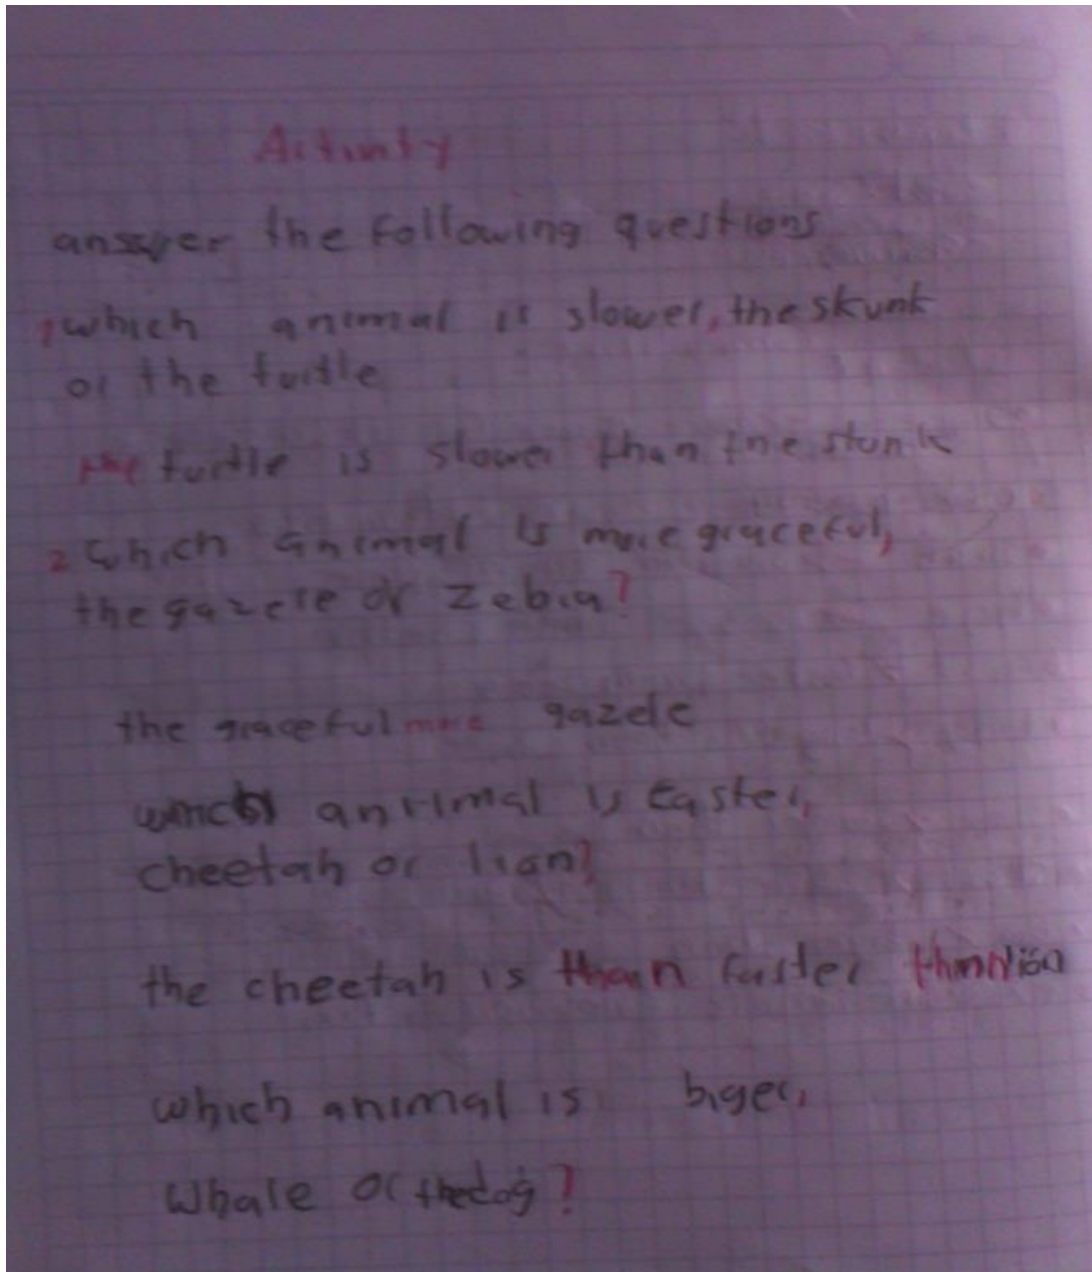 Activity
answer the following questions
1 which animal is slower, the skunk
or the turtle
the turtle is slower than the stunk
2 which animal is more graceful,
the gazele or zebra?
the graceful more gazele
which anrimal is faster,
cheetah or lion?
the cheetah is than faster than lion
which animal is biger,
whale or the dog?